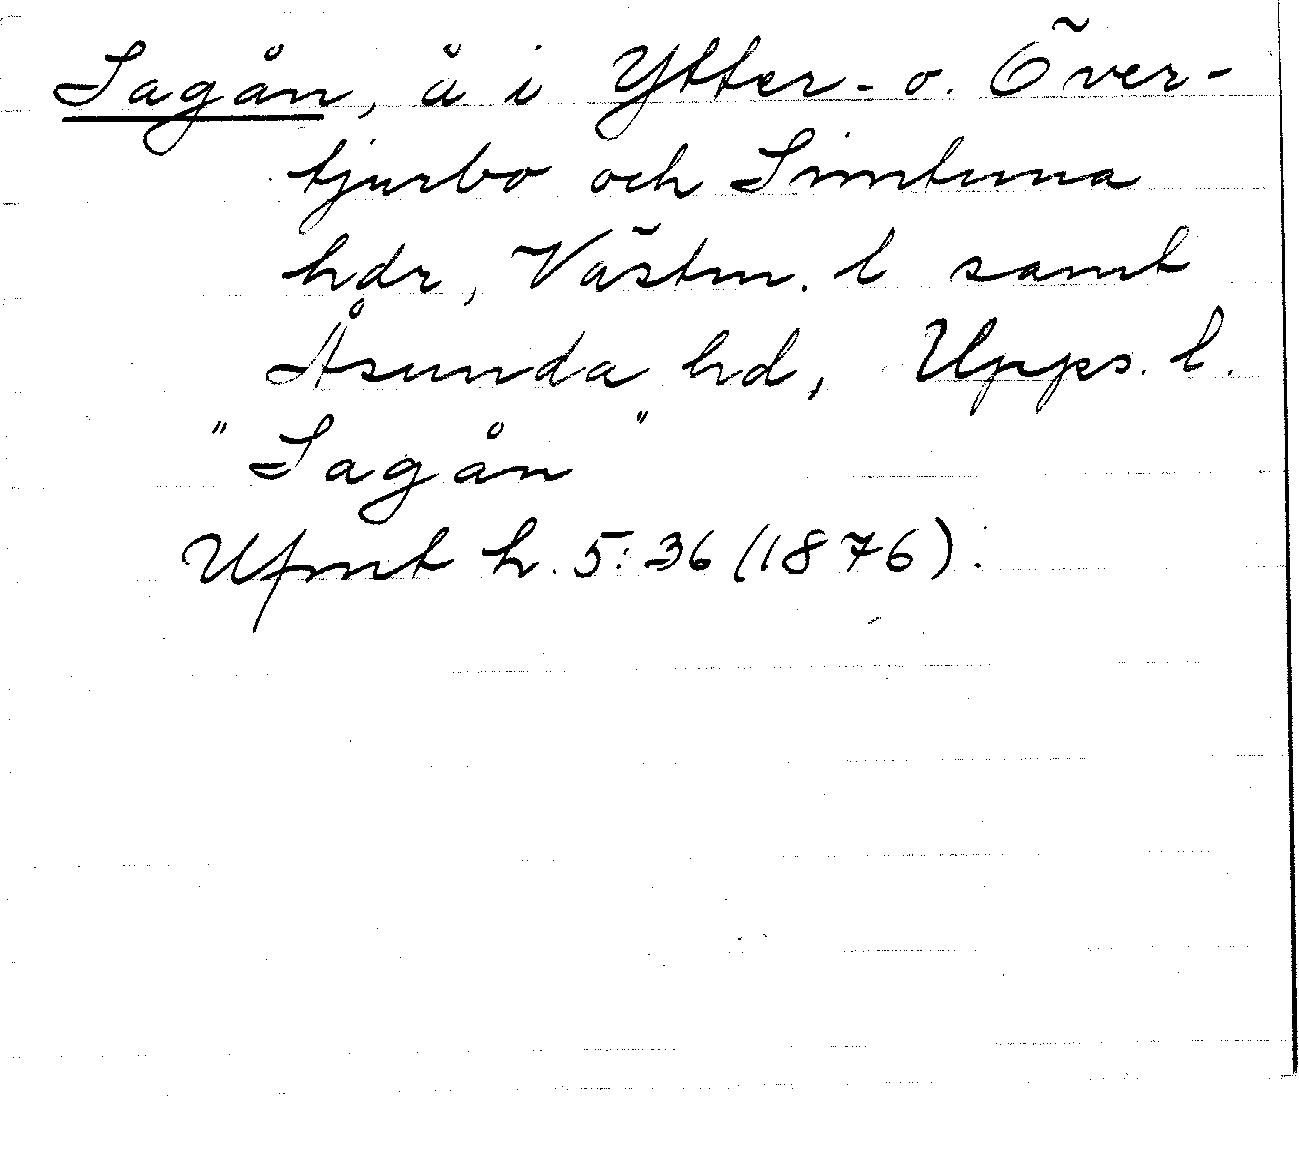 Sagån, å i Ytter- o. Över-
tjurbo och Simtuna
hdr, Västm. l samt
Åsunda hd, Upps. l.
"Sagån"
Ufmt h. 5:36 (1876).